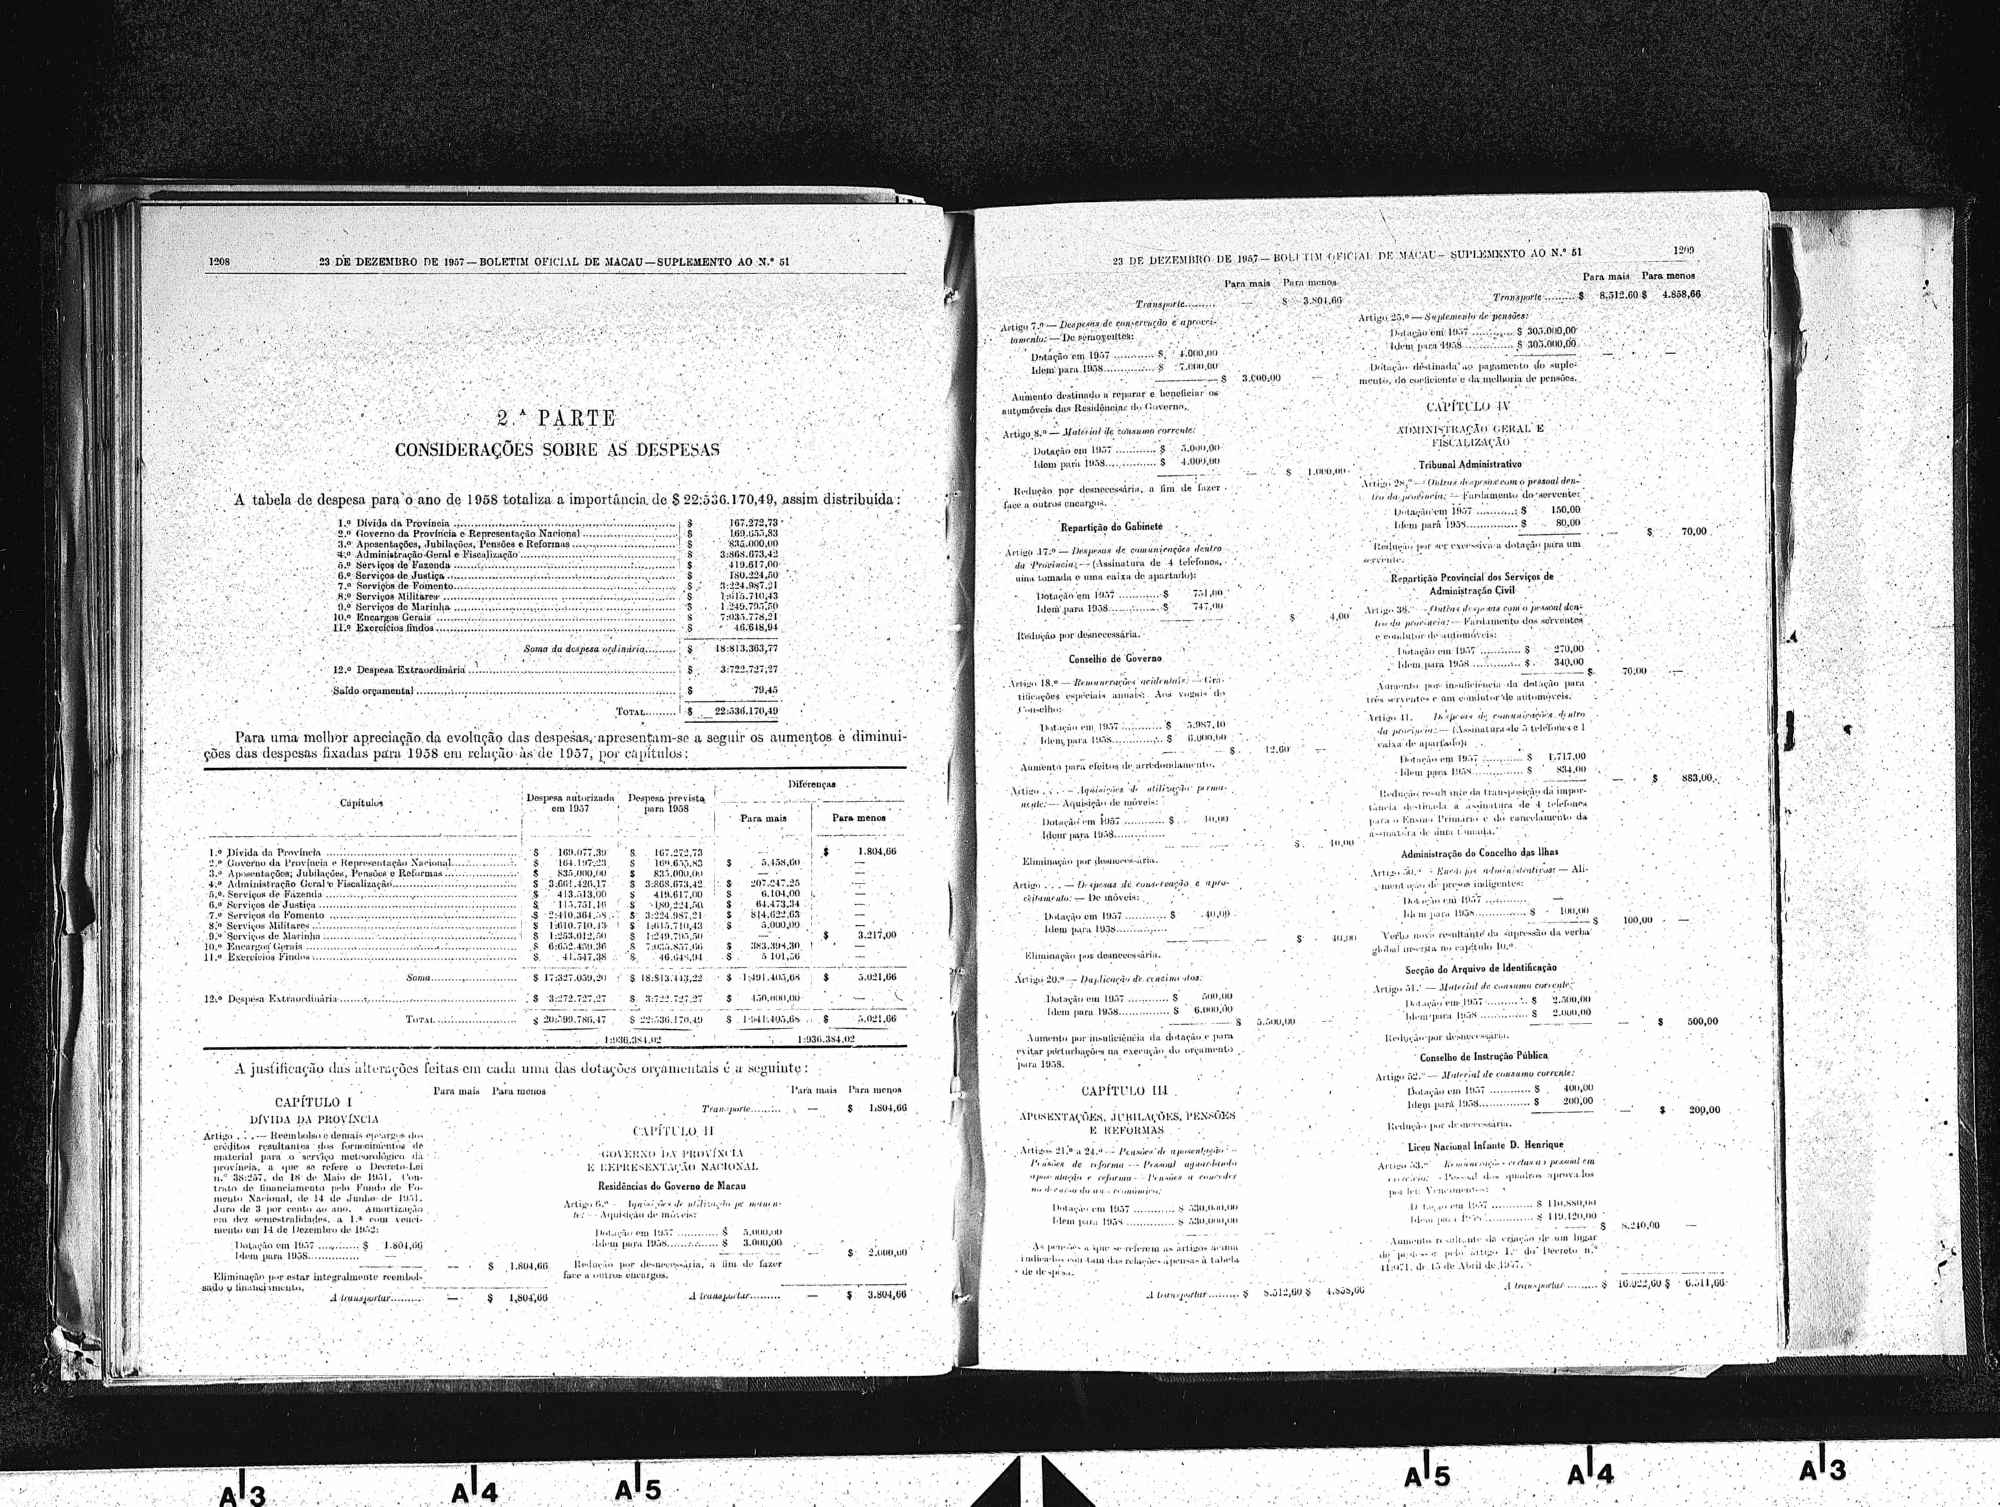 1208
23 DE DEZEMBRO DE 1957—BOLETIM OFICIAL DE MACAU—SUPLEMENTO AO N.º 51
2.ª PARTE
CONSIDERAÇÕES SOBRE AS DESPESAS
A tabela de despesa para o ano de 1958 totaliza a importância de $ 22:536.170,49, assim distribuída:
1.º Dívida da Província $ 167.272,73
2.º Governo da Província e Representação Nacional $ 169.655,83
3.º Aposentações, Jubilações, Pensões e Reformas $ 835.000,00
4.º Administração Geral e Fiscalização $ 3:868.673,42
5.º Serviços de Fazenda $ 419.617,00
6.º Serviços de Justiça $ 180.224,50
7.º Serviços de Fomento $ 3:224.987,21
8.º Serviços Militares $ 1:615.710,43
9.º Serviços de Marinha $ 1.249.795,50
10.º Encargos Gerais $ 7:035.778,21
11.º Exercícios findos $ 46.648,94
Soma da despesa ordinária $ 18:813.363,77
12.º Despesa Extraordinária $ 3:722.727,27
Saldo orçamental $ 79,45
TOTAL $ 22:536.170,49
Para uma melhor apreciação da evolução das despesas, apresentam-se a seguir os aumentos e diminui-
ções das despesas fixadas para 1958 em relação às de 1957, por capítulos:
Capítulos
Despesa autorizada em 1957
Despesa prevista para 1958
Diferenças
Para mais
Para menos
1.º Dívida da Província $ 169.077,39 $ 167.272,73 — $ 1.804,66
2.º Governo da Província e Representação Nacional $ 164.197,23 $ 169.655,83 $ 5.458,60 —
3.º Aposentações, Jubilações, Pensões e Reformas $ 835.000,00 $ 835.000,00 — —
4.º Administração Geral e Fiscalização $ 3:661.426,17 $ 3:868.673,42 $ 207.247,25 —
5.º Serviços de Fazenda $ 413.513,00 $ 419.617,00 $ 6.104,00 —
6.º Serviços de Justiça $ 115.751,16 $ 180.224,50 $ 64.473,34 —
7.º Serviços de Fomento $ 2:410.364,58 $ 3:224.987,21 $ 814.622,63 —
8.º Serviços Militares $ 1:610.710,43 $ 1:615.710,43 $ 5.000,00 —
9.º Serviços de Marinha $ 1:253.012,50 $ 1:249.795,50 — $ 3.217,00
10.º Encargos Gerais $ 6:652.459,36 $ 7:035.857,66 $ 383.398,30 —
11.º Exercícios Findos $ 41.547,38 $ 46.648,94 $ 5.101,56 —
Soma $ 17:327.059,20 $ 18:813.443,22 $ 1:491.405,68 $ 5.021,66
12.º Despesa Extraordinária $ 3:272.727,27 $ 3:722.727,27 $ 450.000,00 —
TOTAL $ 20:599.786,47 $ 22:536.170,49 $ 1:941.405,68 $ 5.021,66
1:936.384,02 1:936.384,02
A justificação das alterações feitas em cada uma das dotações orçamentais é a seguinte:
Para mais Para menos
CAPÍTULO I
DÍVIDA DA PROVÍNCIA
Artigo . . . — Reembolso e demais encargos dos
créditos resultantes dos fornecimentos de
material para o serviço meteorológico da
província, a que se refere o Decreto-Lei
n.º 38:257, de 18 de Maio de 1951. Con-
trato de financiamento pelo Fundo de Fo-
mento Nacional, de 14 de Junho de 1951.
Juro de 3 por cento ao ano. Amortização
em dez semestralidades, a 1.ª com venci-
mento em 14 de Dezembro de 1952:
Dotação em 1957 $ 1.804,66
Idem para 1958 —
— $ 1.804,66
Eliminação por estar integralmente reembol-
sado o financiamento.
A transportar — $ 1.804,66
Para mais Para menos
Transporte — $ 1.804,66
CAPÍTULO II
GOVERNO DA PROVÍNCIA
E REPRESENTAÇÃO NACIONAL
Residências do Governo de Macau
Artigo 6.º — Aquisições de utilização permanen-
te: — Aquisição de móveis:
Dotação em 1957 $ 5.000,00
Idem para 1958 $ 3.000,00
— $ 2.000,00
Redução por desnecessária, a fim de fazer
face a outros encargos.
A transportar — $ 3.804,66
23 DE DEZEMBRO DE 1957—BOLETIM OFICIAL DE MACAU—SUPLEMENTO AO N.º 51
1209
Para mais Para menos
Transporte — $ 3.804,66
Artigo 7.º — Despesas de conservação e aprovei-
tamento: — De semoventes:
Dotação em 1957 $ 4.000,00
Idem para 1958 $ 7.000,00
$ 3.000,00 —
Aumento destinado a reparar e beneficiar os
automóveis das Residências do Governo.
Artigo 8.º — Material de consumo corrente:
Dotação em 1957 $ 5.000,00
Idem para 1958 $ 4.000,00
— $ 1.000,00
Redução por desnecessária, a fim de fazer
face a outros encargos.
Repartição do Gabinete
Artigo 17.º — Despesas de comunicações dentro
da Província: — (Assinatura de 4 telefones,
uma tomada e uma caixa de apartado):
Dotação em 1957 $ 751,00
Idem para 1958 $ 747,00
$ 4,00
Redução por desnecessária.
Conselho de Governo
Artigo 18.º — Remunerações acidentais: — Gra-
tificações especiais anuais: Aos vogais do
Conselho:
Dotação em 1957 $ 5.987,40
Idem para 1958 $ 6.000,00
$ 12,60 —
Aumento para efeitos de arredondamento.
Artigo . . . — Aquisições de utilização perma-
nente: — Aquisição de móveis:
Dotação em 1957 $ 10,00
Idem para 1958
$ 10,00
Eliminação por desnecessária.
Artigo . . . — Despesas de conservação e apro-
veitamento: — De móveis:
Dotação em 1957 $ 40,00
Idem para 1958
— $ 40,00
Eliminação por desnecessária.
Artigo 20.º — Duplicação de vencimentos:
Dotação em 1957 $ 500,00
Idem para 1958 $ 6.000,00
$ 5.500,00 —
Aumento por insuficiência da dotação e para
evitar perturbações na execução do orçamento
para 1958.
CAPÍTULO III
APOSENTAÇÕES, JUBILAÇÕES, PENSÕES
E REFORMAS
Artigos 21.º a 24.º — Pensões de aposentação —
Pensões de reforma — Pessoal aguardando
aposentação e reforma — Pensões a conceder
no decurso do ano económico:
Dotação em 1957 $ 530.000,00
Idem para 1958 $ 530.000,00
As pensões a que se referem os artigos acima
indicados constam das relações apensas à tabela
de despesa.
A transportar $ 8.512,60 $ 4.858,66
Para mais Para menos
Transporte $ 8.512,60 $ 4.858,66
Artigo 25.º — Suplemento de pensões:
Dotação em 1957 $ 305.000,00
Idem para 1958 $ 305.000,00
— —
Dotação destinada ao pagamento do suple-
mento, do coeficiente e da melhoria de pensões.
CAPÍTULO IV
ADMINISTRAÇÃO GERAL E
FISCALIZAÇÃO
Tribunal Administrativo
Artigo 28.º — Outras despesas com o pessoal den-
tro da província: — Fardamento do servente:
Dotação em 1957 $ 150,00
Idem para 1958 $ 80,00
— $ 70,00
Redução por ser excessiva a dotação para um
servente.
Repartição Provincial dos Serviços de
Administração Civil
Artigo 38.º — Outras despesas com o pessoal den-
tro da província: — Fardamento dos serventes
e condutor de automóveis:
Dotação em 1957 $ 270,00
Idem para 1958 $ 340,00
$ 70,00 —
Aumento por insuficiência da dotação para
três serventes e um condutor de automóveis.
Artigo 41. — Despesas de comunicações dentro
da província: — (Assinatura de 5 telefones e 1
caixa de apartado):
Dotação em 1957 $ 1.717,00
Idem para 1958 $ 834,00
— $ 883,00
Redução resultante da transposição da impor-
tância destinada à assinatura de 4 telefones
para o Ensino Primário e do cancelamento da
assinatura de uma tomada.
Administração do Concelho das Ilhas
Artigo 50.º — Encargos administrativos: — Ali-
mentação de presos indigentes:
Dotação em 1957 —
Idem para 1958 $ 100,00
$ 100,00 —
Verba nova resultante da supressão da verba
global inserta no capítulo 10.º
Secção do Arquivo de Identificação
Artigo 51.º — Material de consumo corrente:
Dotação em 1957 $ 2.500,00
Idem para 1958 $ 2.000,00
— $ 500,00
Redução por desnecessária.
Conselho de Instrução Pública
Artigo 52.º — Material de consumo corrente:
Dotação em 1957 $ 400,00
Idem para 1958 $ 200,00
— $ 200,00
Redução por desnecessária.
Liceu Nacional Infante D. Henrique
Artigo 53.º — Remunerações certas ao pessoal em
exercício: — Pessoal dos quadros aprovados
por lei: Vencimentos:
Dotação em 1957 $ 110.880,00
Idem para 1958 $ 119.120,00
$ 8.240,00 —
Aumento resultante da criação de um lugar
de professor pelo artigo 1.º do Decreto n.º
41:071, de 15 de Abril de 1957.
A transportar $ 16.922,60 $ 6.511,66
A|3 A|4 A|5 A|5 A|4 A|3